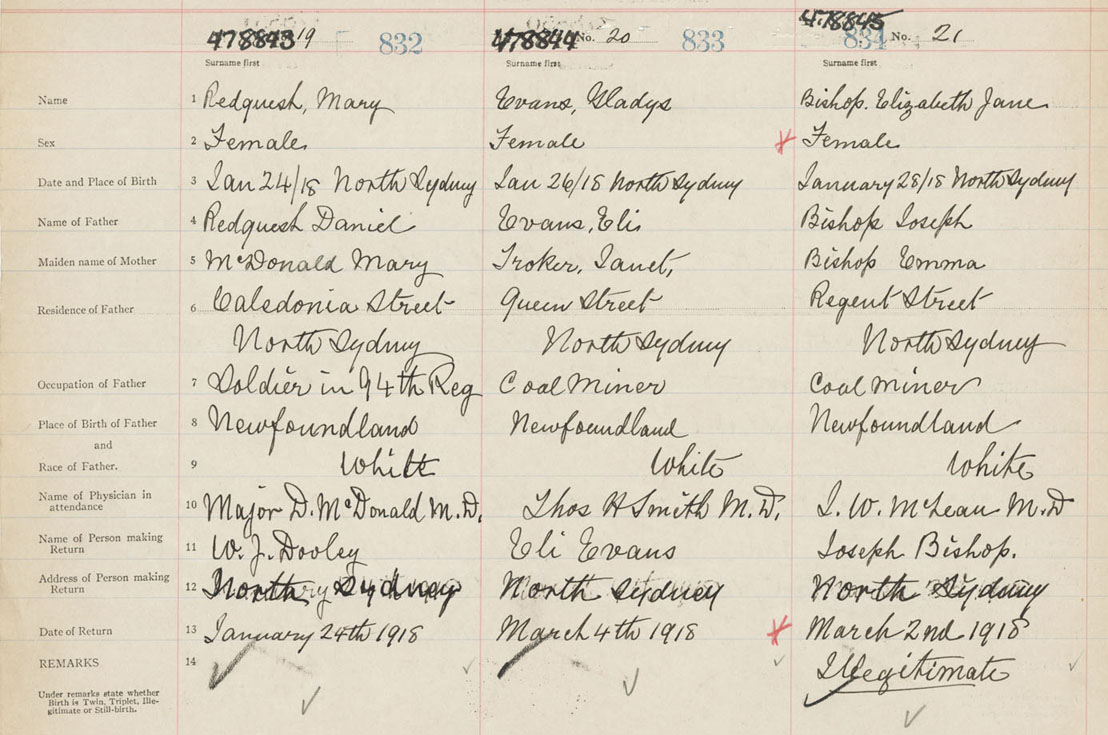 478843 19 832 478844 No. 20 833 478845 834 No. 21
Surname first Surname first Surname first
Name 1 Redquesh, Mary Evans, Gladys Bishop. Elizabeth Jane
Sex 2 Female Female Female
Date and Place of Birth 3 Jan 24/18 North Sydney Jan 26/18 North Sydney January 28/18 North Sydney
Name of Father 4 Redquesh Daniel Evans, Eli Bishop Joseph
Maiden name of Mother 5 McDonald Mary Troker, Janet, Bishop Emma
Residence of Father 6 Caledonia Street Queen Street Regent Street
North Sydney North Sydney North Sydney
Occupation of Father 7 Soldier in 94th Reg Coal Miner Coal Miner
Place of Birth of Father 8 Newfoundland Newfoundland Newfoundland
and
Race of Father. 9 White White White
Name of Physician in
attendance 10 Major D. McDonald M.D. Thos H Smith M.D. J. W. McLean M.D
Name of Person making
Return 11 W. J. Dooley Eli Evans Joseph Bishop.
Address of Person making
Return 12 North Sydney North Sydney North Sydney
Date of Return 13 January 24th 1918 March 4th 1918 March 2nd 1918
REMARKS 14 Illegitimate
Under remarks state whether
Birth is Twin, Triplet, Ille-
gitimate or Still-birth.